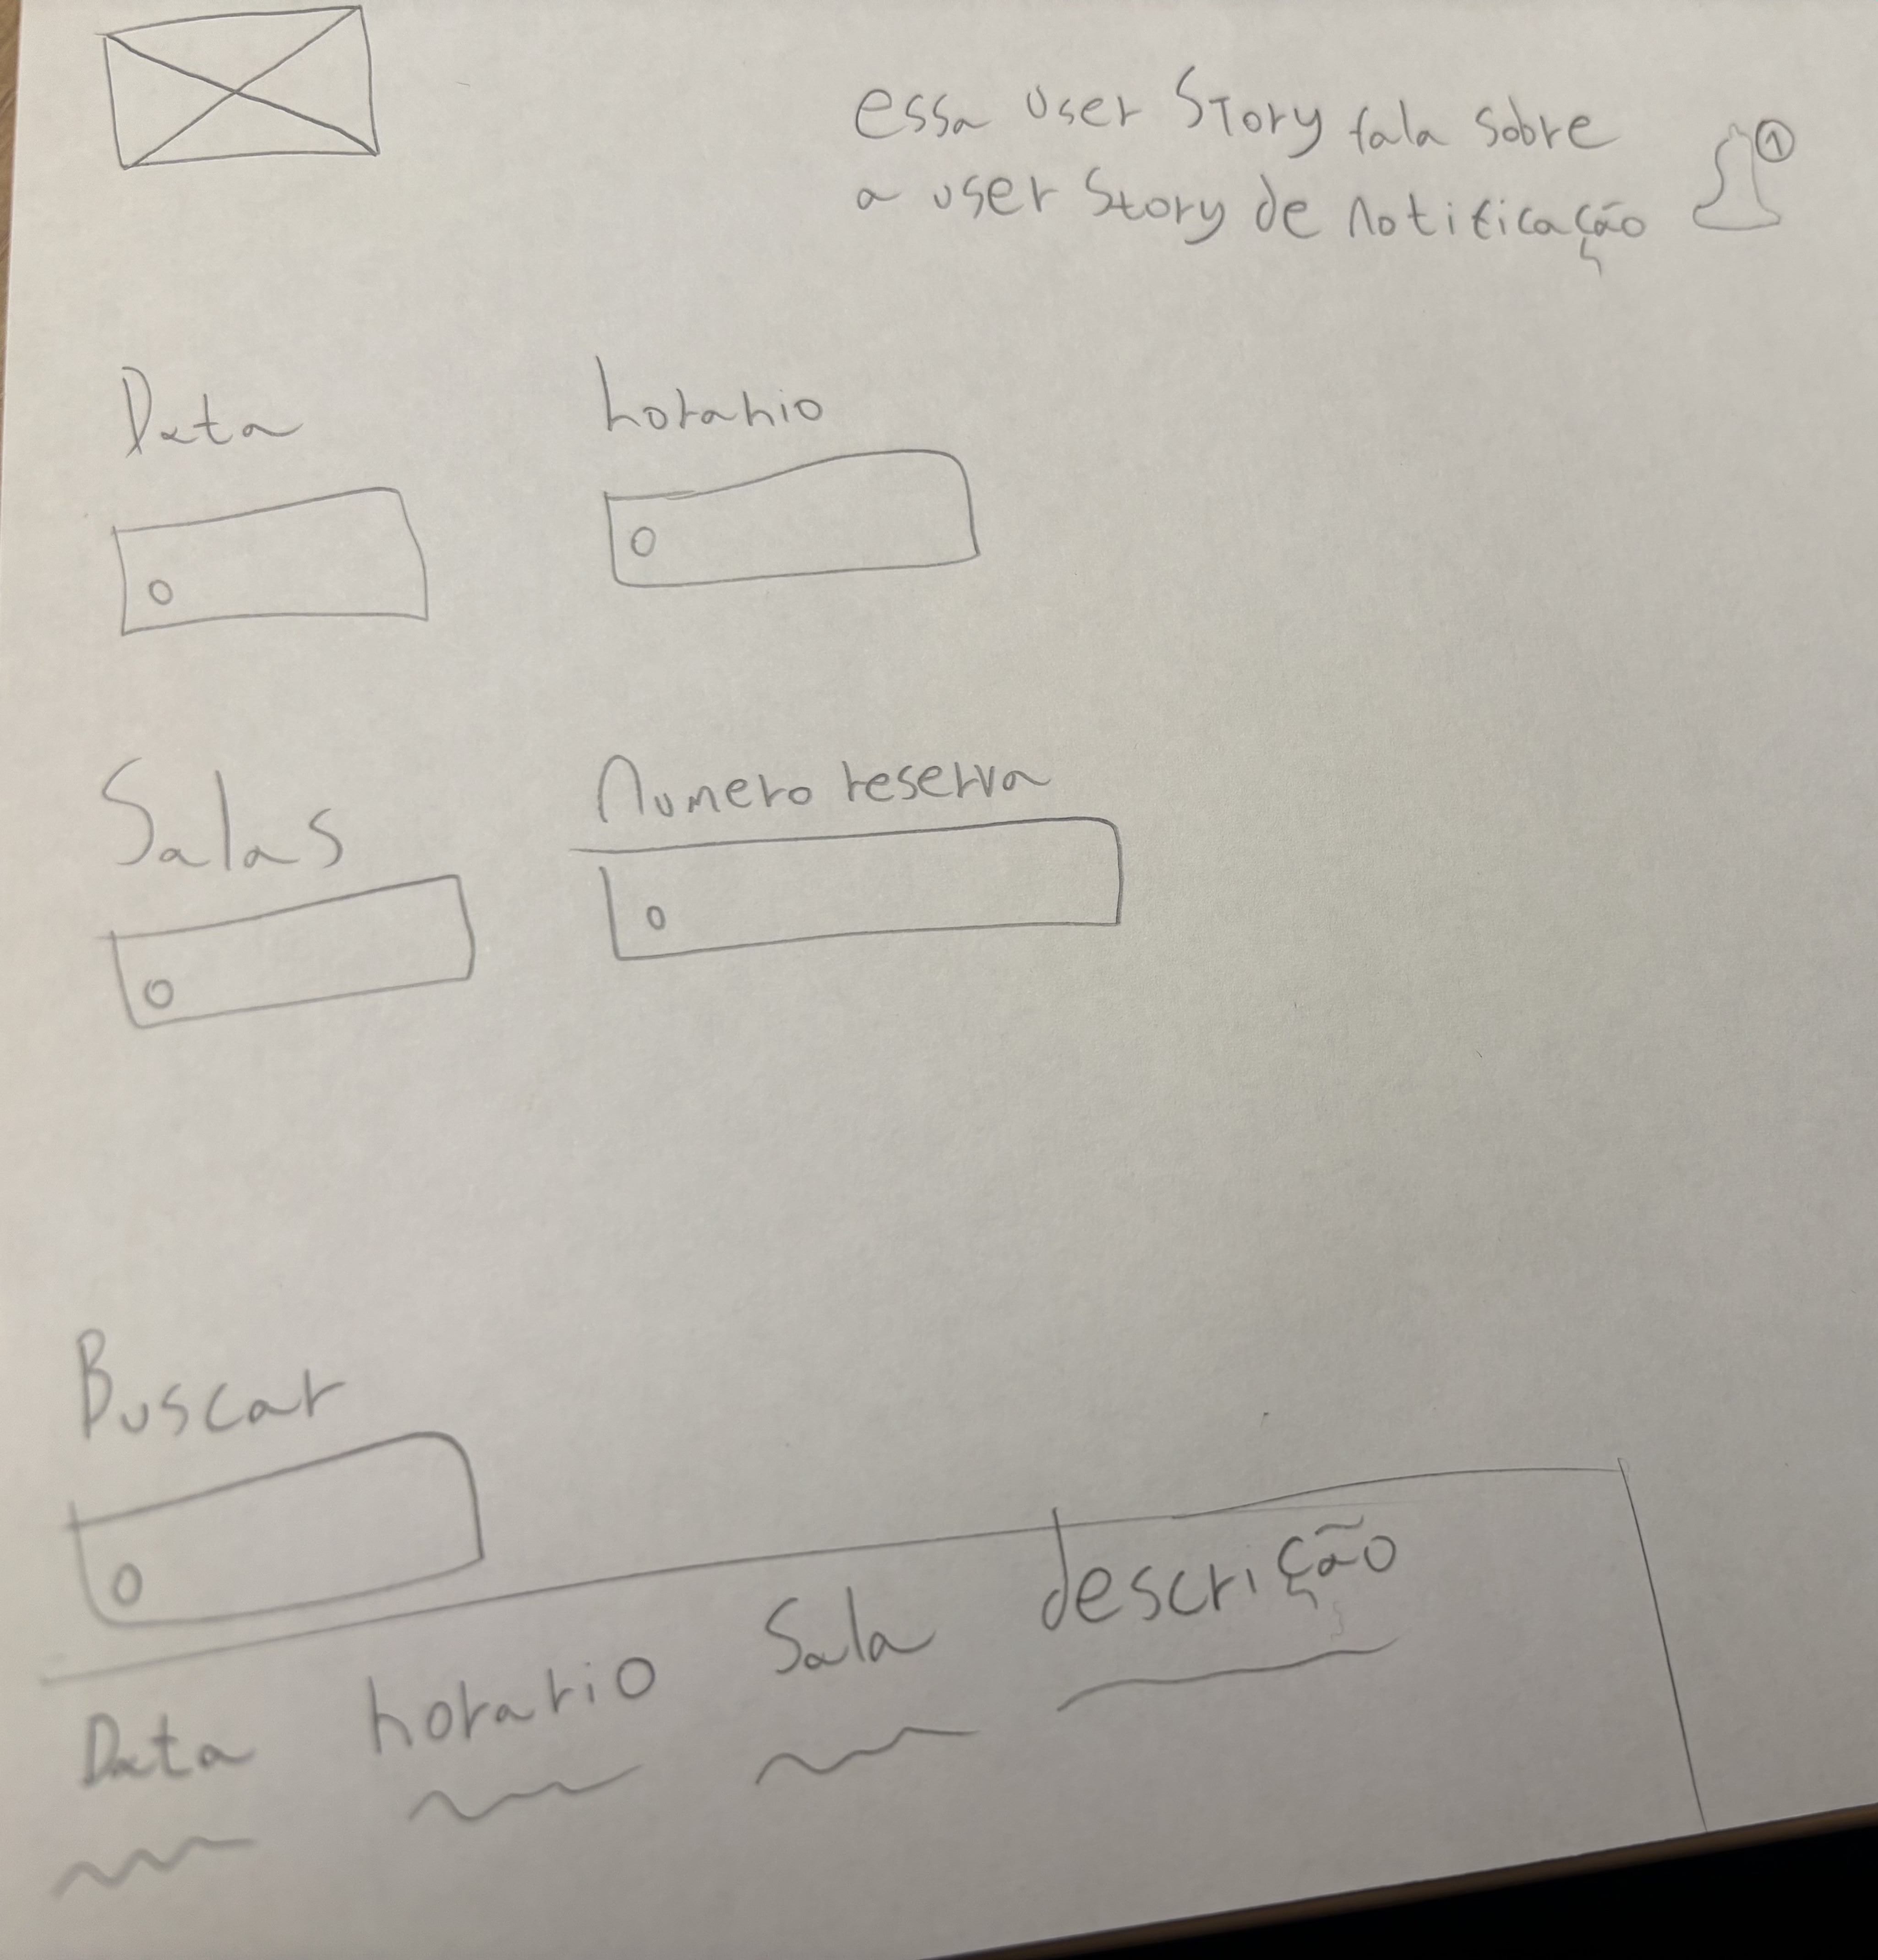 essa user Story fala sobre
a user Story de notificação
1
Data horario
Salas Numero reserva
Buscar
Data horario Sala descrição